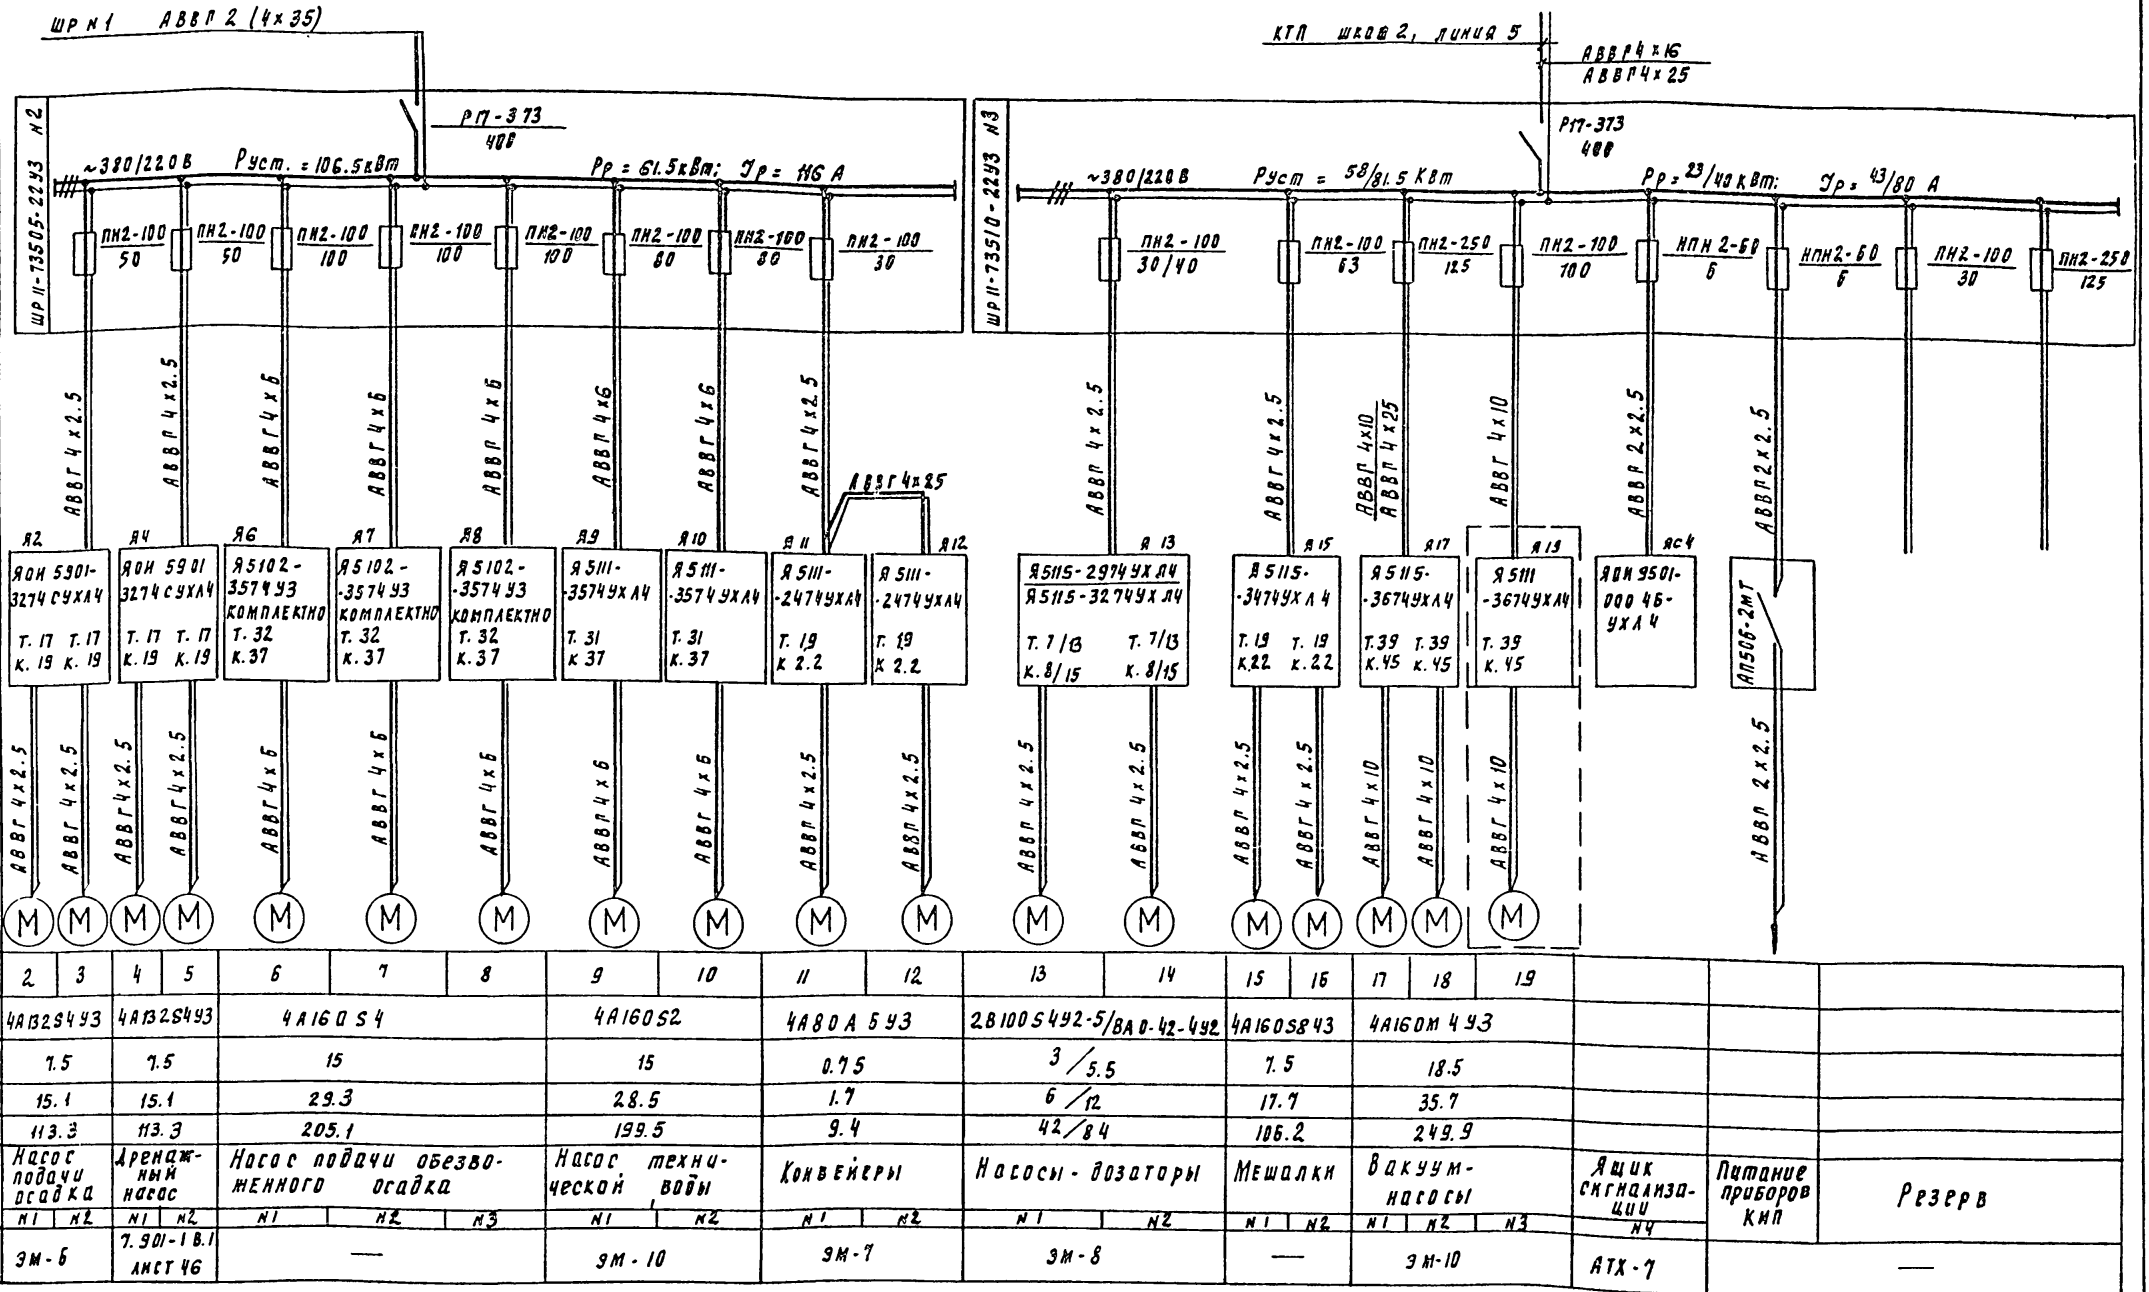 ШР N1 АВВГ 2 (4×35)
КТП шкаф 2, линия 5
АВВГ4×16
АВВГ4×25
ШР11-73505-22У3 N2
Р17-373
400
~380/220В Руст. = 106.5кВт Рр = 61.5кВт; Jр = 116 А
ПН2-100
50
ПН2-100
50
ПН2-100
100
ПН2-100
100
ПН2-100
100
ПН2-100
80
ПН2-100
80
ПН2-100
30
ШР11-73510-22У3 N3
Р17-373
400
~380/220В Руст = 58/81.5 кВт Рр = 23/40кВт; Jр = 43/80 А
ПН2-100
30/40
ПН2-100
63
ПН2-250
125
ПН2-100
100
НПН2-60
6
НПН2-60
6
ПН2-100
30
ПН2-250
125
АВВГ 4×2.5
АВВГ 4×2.5
АВВГ 4×6
АВВГ 4×6
АВВГ 4×6
АВВГ 4×6
АВВГ 4×6
АВВГ 4×2.5
АВВГ 4×25
АВВГ 4×2.5
АВВГ 4×2.5
АВВГ 4×10
АВВГ 4×25
АВВГ 4×10
АВВГ 2×2.5
АВВГ 2×2.5
Я2
ЯОИ 5901-
3274 СУХЛ4
Т. 17 Т. 17
К. 19 К. 19
Я4
ЯОИ 5901
3274 СУХЛ4
Т. 17 Т. 17
К. 19 К. 19
Я6
Я5102-
3574У3
комплектно
Т. 32
К. 37
Я7
Я5102-
-3574У3
комплектно
Т. 32
К. 37
Я8
Я5102-
-3574У3
комплектно
Т. 32
К. 37
Я9
Я5111-
-3574УХЛ4
Т. 31
К 37
Я10
Я5111-
-3574УХЛ4
Т. 31
К. 37
Я11
Я5111-
-2474УХЛ4
Т. 1,9
К 2.2
Я12
Я5111-
-2474УХЛ4
Т. 1,9
К 2.2
Я 13
Я5115-2974УХЛ4
Я5115-3274УХЛ4
Т. 7/13 Т. 7/13
К. 8/15 К. 8/15
Я15
Я5115-
-3474УХЛ4
Т. 19 Т. 19
К.22 К.22
Я17
Я5115-
-3674УХЛ4
Т.39 Т.39
К.45 К.45
Я19
Я5111
-3674УХЛ4
Т. 39
К. 45
ЯС4
ЯОИ 9501-
000 4Б-
УХЛ4
АП50Б-2МТ
АВВГ 4×2.5
АВВГ 4×2.5
АВВГ 4×2.5
АВВГ 4×2.5
АВВГ 4×6
АВВГ 4×6
АВВГ 4×6
АВВГ 4×6
АВВГ 4×6
АВВГ 4×2.5
АВВГ 4×2.5
АВВГ 4×2.5
АВВГ 4×2.5
АВВГ 4×2.5
АВВГ 4×2.5
АВВГ 4×10
АВВГ 4×10
АВВГ 4×10
АВВГ 2×2.5
М М М М М М М М М М М М М М М М М М
2 3 4 5 6 7 8 9 10 11 12 13 14 15 16 17 18 19
4А132S4У3 4А132S4У3 4А160S4 4А160S2 4А80А5У3 2В100S4У2-5/ВАО-42-4У2 4А160S8У3 4А160М4У3
7.5 7.5 15 15 0.75 3/5.5 7.5 18.5
15.1 15.1 29.3 28.5 1.7 6/12 17.7 35.7
113.3 113.3 205.1 199.5 9.4 42/84 106.2 249.9
Насос
подачи
осадка
Дренаж-
ный
насос
Насос подачи обезво-
женного осадка
Насос техни-
ческой воды
Конвейеры
Насосы-дозаторы
Мешалки
Вакуум-
насосы
Ящик
сигнализа-
ции
N4
Питание
приборов
КИП
Резерв
N1 N2 N1 N2 N1 N2 N3 N1 N2 N1 N2 N1 N2 N1 N2 N1 N2 N3
ЭМ-6
7.901-1 В.1
лист 46
—
ЭМ-10
ЭМ-7
ЭМ-8
—
ЭМ-10
АТХ-7
—